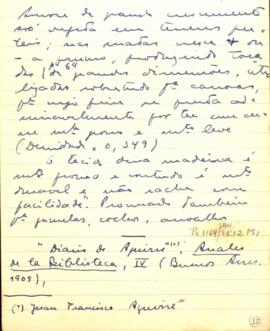 Arvore de grande crescimento
só vegeta em terrenos fer-
teis; nas matas cresce
a prumo, produzindo toras
de grandes dimensões, uti-
lizadas sobretudo pª canoas,
pª cujo fim se presta ad-
miravelmente por ter um cer-
ne mtº e mtº leve
(Densidade: 0,349)
O tecido dessa madeira é
mtº poroso e contudo é mtº
duravel e não racha com
facilidade". Procurado tambem
pª gamelas, cochos,
"Diario de Aguirre" (*), Anales
de la Biblioteca, IV (Buenos Aires.
1905),
(*) Juan Francisco Aguirre